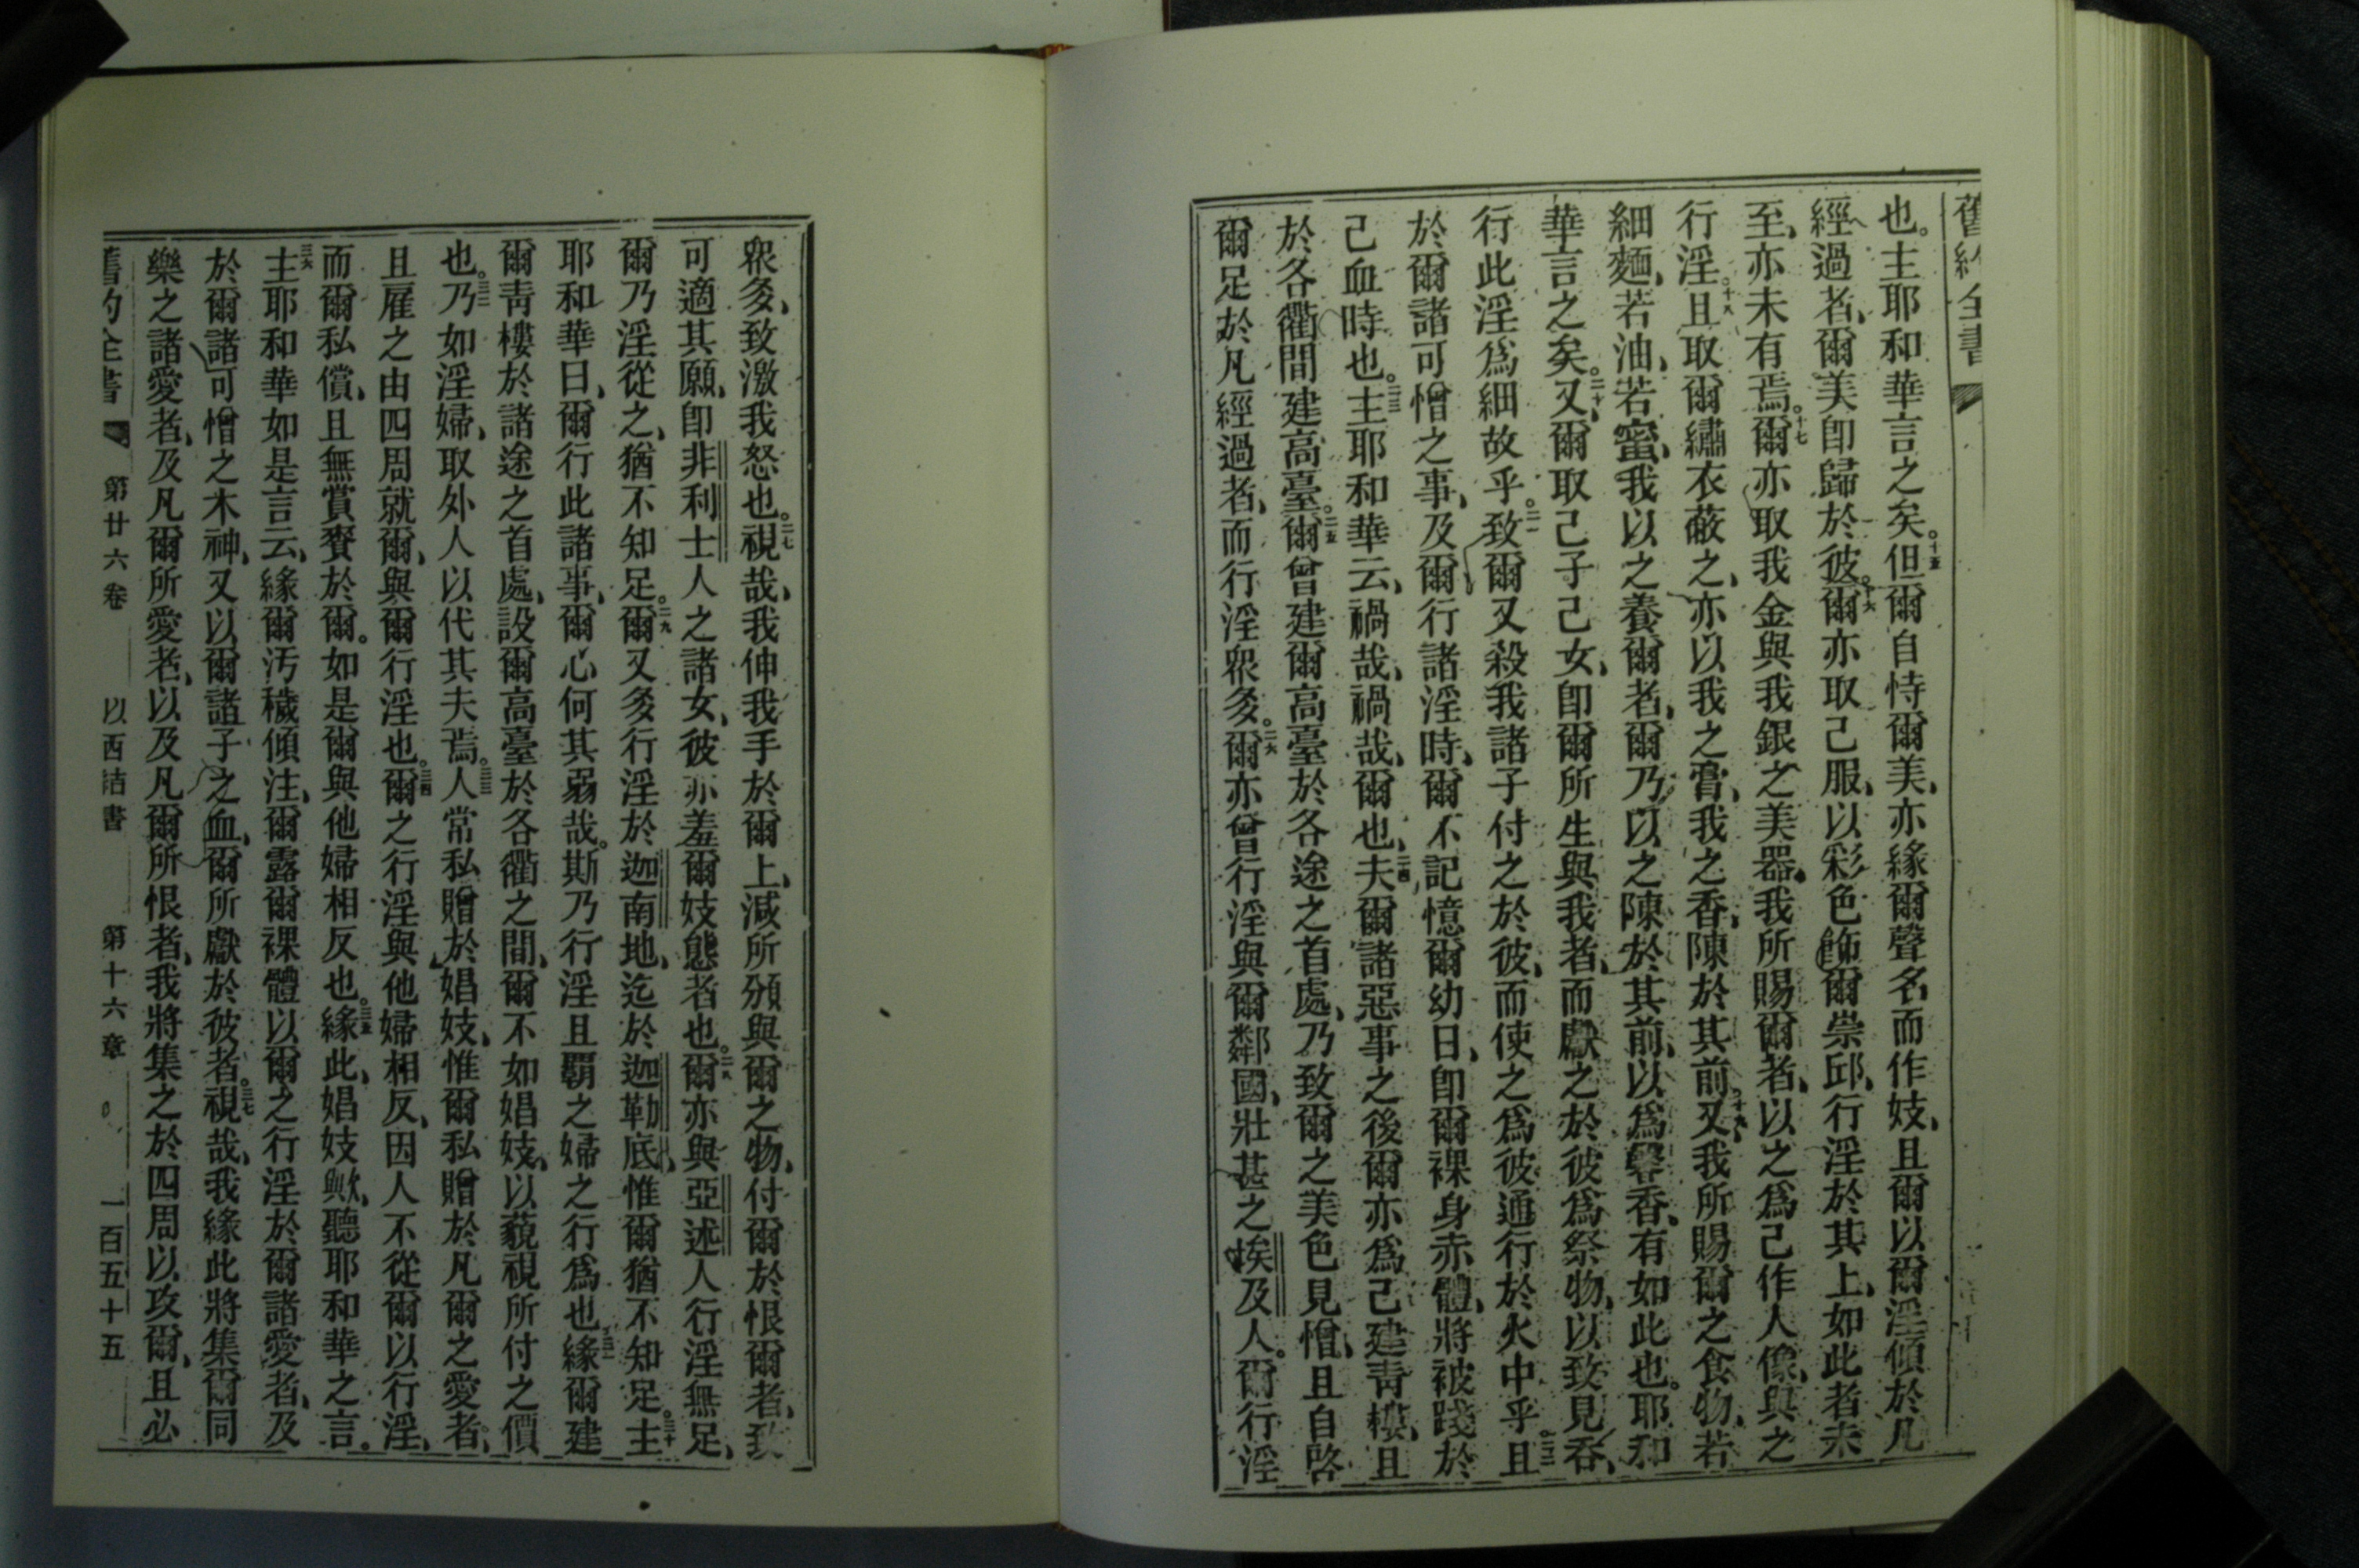 舊約全書
也。主耶和華言之矣。十五但爾自恃爾美、亦緣爾聲名而作妓、且爾以爾淫傾於凡
經過者、爾美卽歸於彼。十六爾亦取己服、以彩色飾爾崇邱、行淫於其上、如此者未
至、亦未有焉。十七爾亦取我金與我銀之美器、我所賜爾者、以之爲己作人像、與之
行淫。十八且取爾繡衣蔽之、亦以我之膏、我之香、陳於其前。十九又、我所賜爾之食物、若
細麵、若油、若蜜、我以之養爾者、爾乃以之陳於其前、以爲馨香、有如此也。耶和
華言之矣。二十又、爾取己子己女、卽爾所生與我者、而獻之於彼爲祭物、以致見吞、
行此淫爲細故乎。二一致爾又殺我諸子付之於彼、而使之爲彼通行於火中乎。二二且
於爾諸可憎之事、及爾行諸淫時、爾不記憶爾幼日、卽爾裸身赤體、將被踐於
己血時也。二三主耶和華云、禍哉、禍哉、爾也、二四夫爾諸惡事之後爾亦爲己建靑樓、且
於各衢間建高臺。二五爾曾建爾高臺於各途之首處、乃致爾之美色見憎、且自啓
爾足於凡經過者、而行淫衆多。二六爾亦曾行淫與爾鄰國、壯甚之埃及人。爾行淫
衆多、致激我怒也。二七視哉、我伸我手於爾上、減所頒與爾之物、付爾於恨爾者、致
可適其願、卽非利士人之諸女、彼亦羞爾妓態者也。二八爾亦與亞述人行淫無足、
爾乃淫從之、猶不知足。二九爾又多行淫於迦南地、迄於迦勒底、惟爾猶不知足。三十主
耶和華曰、爾行此諸事、爾心何其弱哉。斯乃行淫且覇之婦之行爲也三一緣爾建
爾靑樓於諸途之首處、設爾高臺於各衢之間、爾不如娼妓、以藐視所付之價
也。三二乃如淫婦、取外人以代其夫焉。三三人常私贈於娼妓、惟爾私贈於凡爾之愛者、
且雇之由四周就爾、與爾行淫也。三四爾之行淫與他婦相反、因人不從爾以行淫、
而爾私償、且無賞賚於爾。如是爾與他婦相反也。三五緣此、娼妓歟、聽耶和華之言。
三六主耶和華如是言云、緣爾汚穢傾注、爾露爾裸體以爾之行淫於爾諸愛者、及
於爾諸可憎之木神、又以爾諸子之血、爾所獻於彼者。三七視哉、我緣此將集爾同
樂之諸愛者、及凡爾所愛者、以及凡爾所恨者、我將集之於四周以攻爾、且必
舊約全書 第廿六卷 以西結書 第十六章 一百五十五